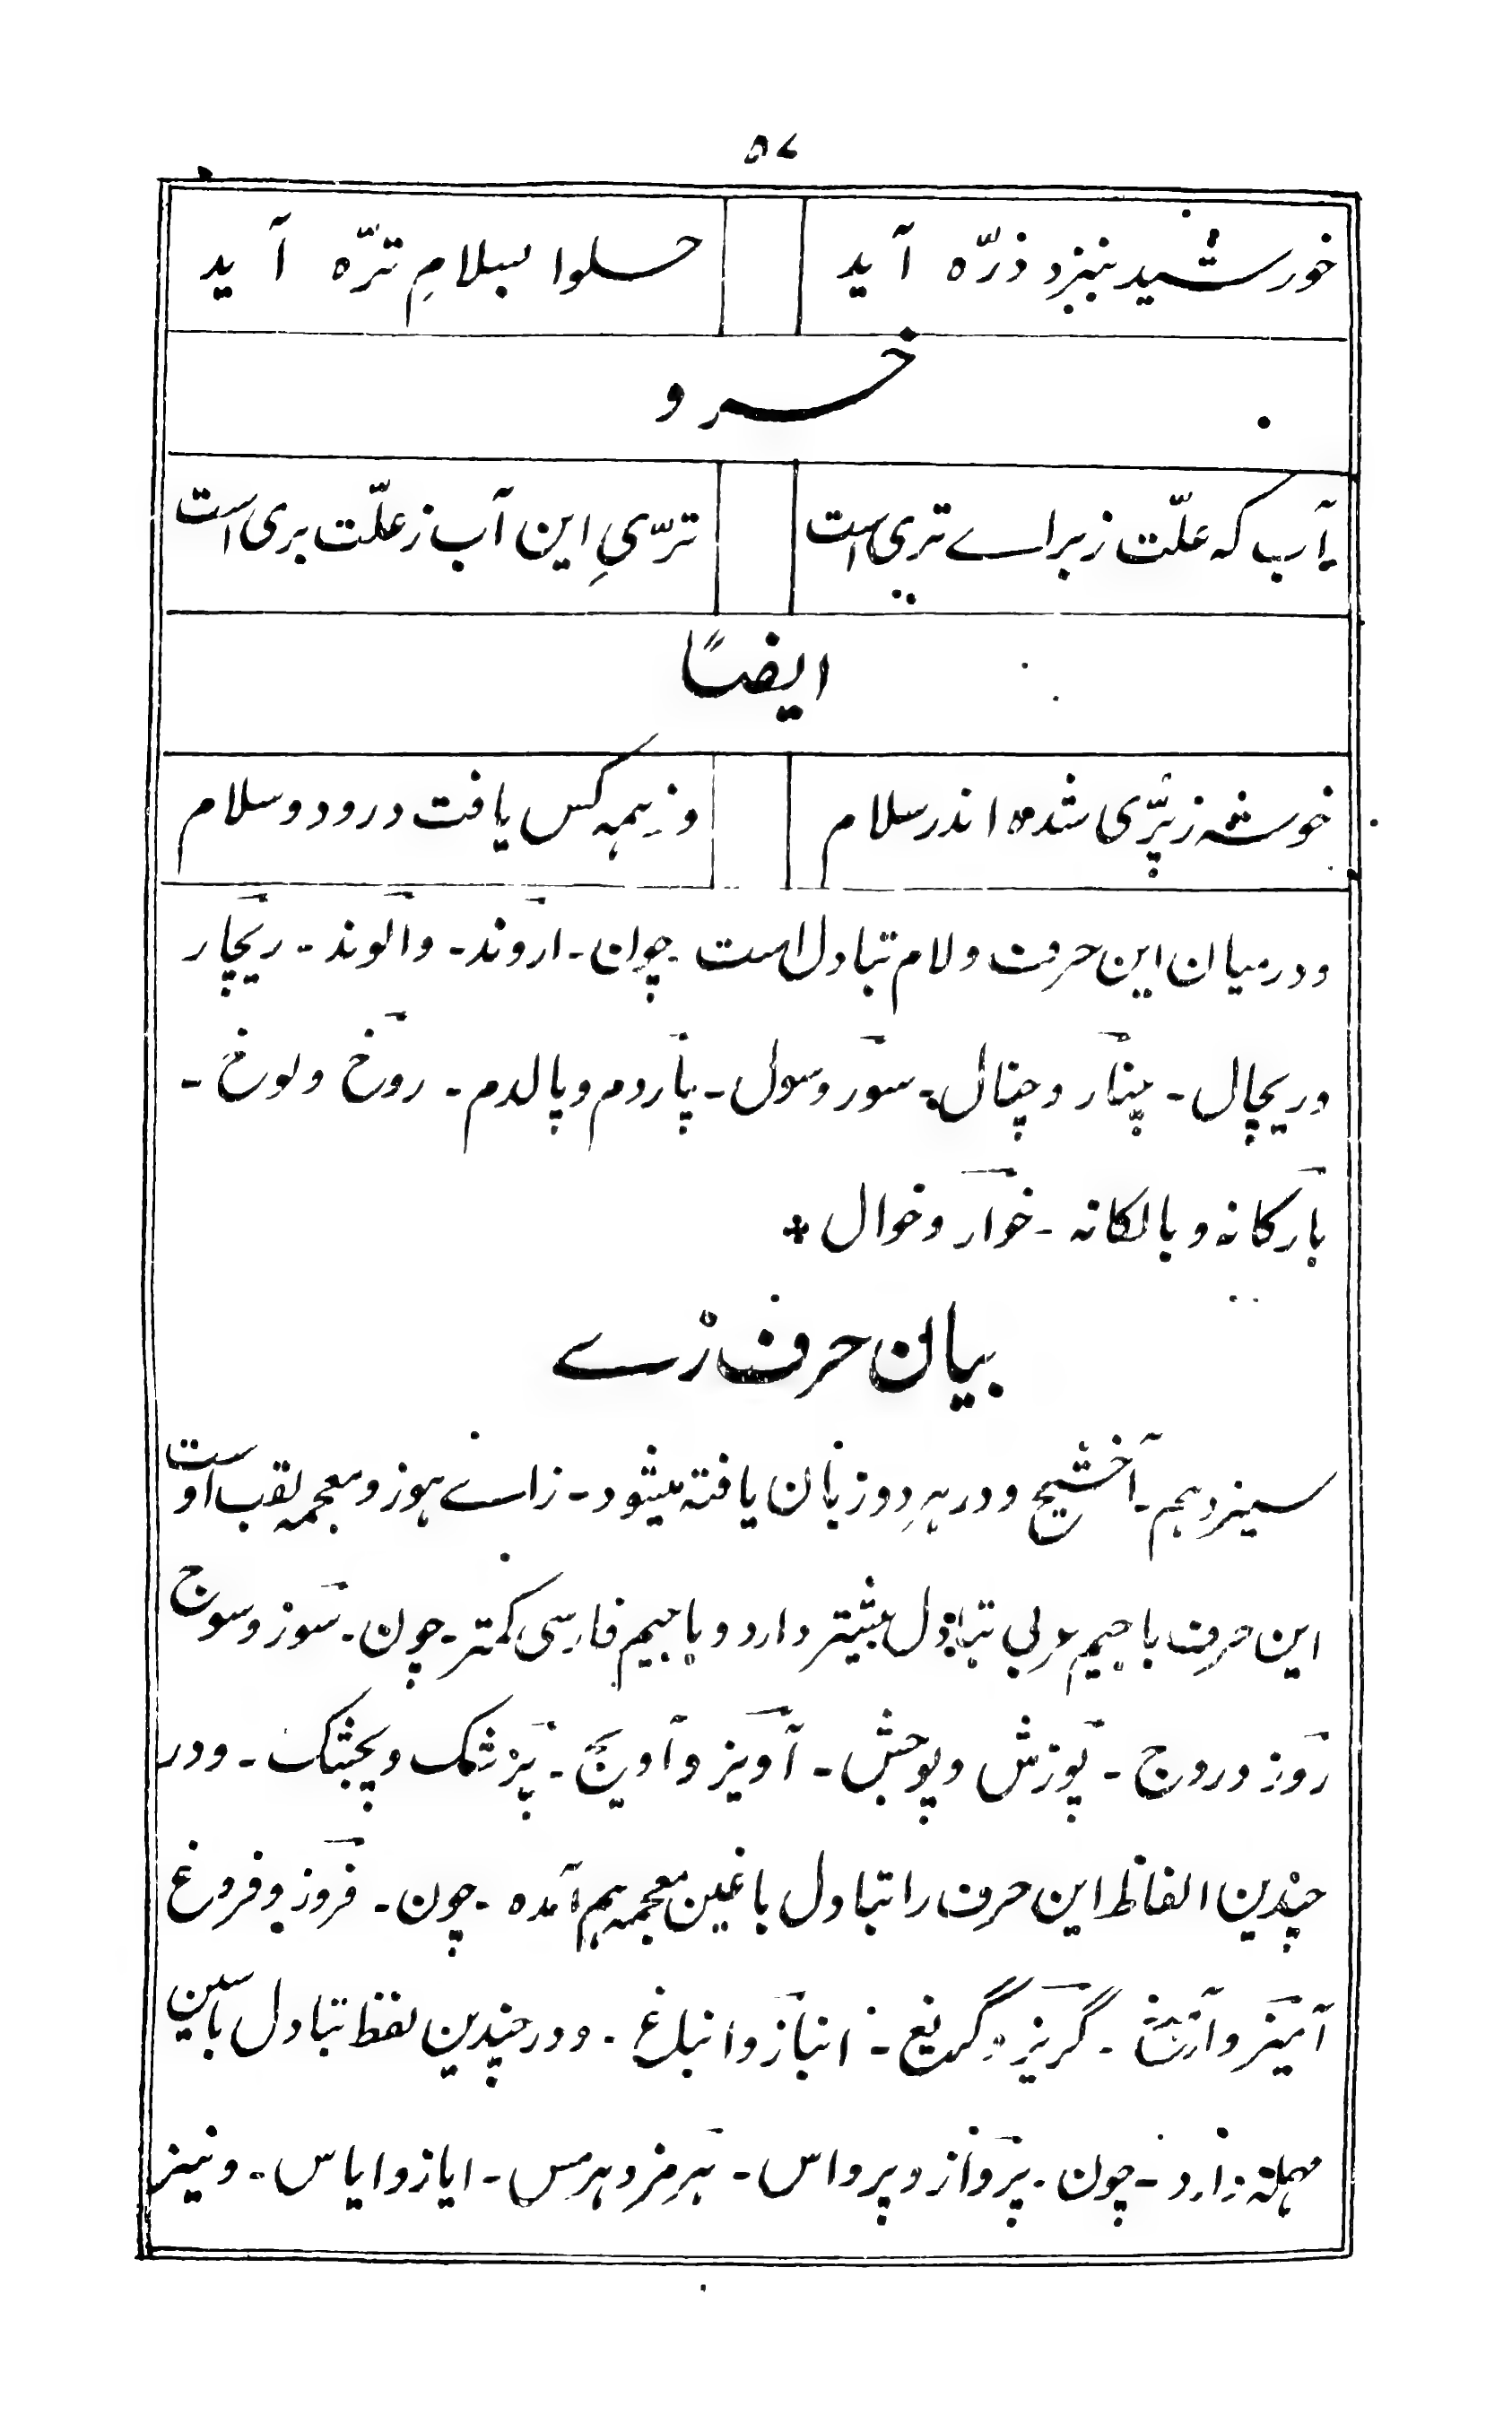 ۵۷
خورشید بنزد ذرّه آید حلوا بسلامِ ترّه آید
خسرو
آب که علّت ز برای تری است ترّیِ این آب ز علّت بری است
ایضاً
خوشه ز پرّی شده اندر سلام وز همه کس یافت درود و سلام
و در میان این حرف و لام تبادل است چون۔ اروند۔ و الوند۔ ریچار
و ریچال۔ چنار و چنال۔ سور و سول۔ پاردم و پالدم۔ روخ و لوخ۔
بارکانه و بالکانه۔ خوار و خوال *
بیان حرف زے
سیزدهم۔ آخشیج و در هر دو زبان یافته میشود۔ زائے هوز و معجمه لقب اوست
این حرف با جیم عربی تبادل بیشتر دارد و با جیم فارسی کمتر۔ چون۔ سوز و سوج
روز و روج۔ پوزش و پوجش۔ آویز و آویج۔ پزشک و پچشک۔ و در
چندین الفاظ این حرف را تبادل با غین معجمه هم آمده۔ چون۔ فروز و فروغ
آمیز و آمیغ۔ گریز و گریغ۔ انباز و انباغ۔ و در چندین لفظ تبادل با سین
مهمله دارد۔ چون۔ پرواز و پرواس۔ هرمز و هرمس۔ ایاز و ایاس۔ و نیز